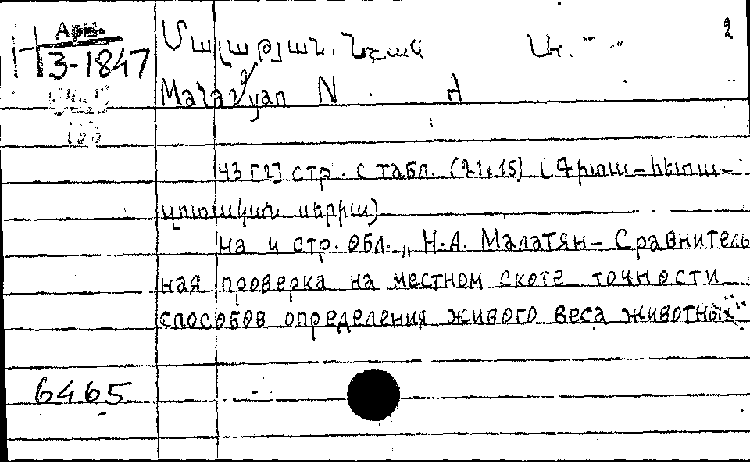 Арм. 2
3-1847
Մալաթյան. Նշան
Malatyan N. A
43 [2] стр. с табл. (21,15) (Գիտա-հետա-
զոտական սերիա)
На 4 стр. обл. „ Н.А. Малатян- Сравнитель
ная проверка на местном скоте точности
способов определения живого веса животных"
6465